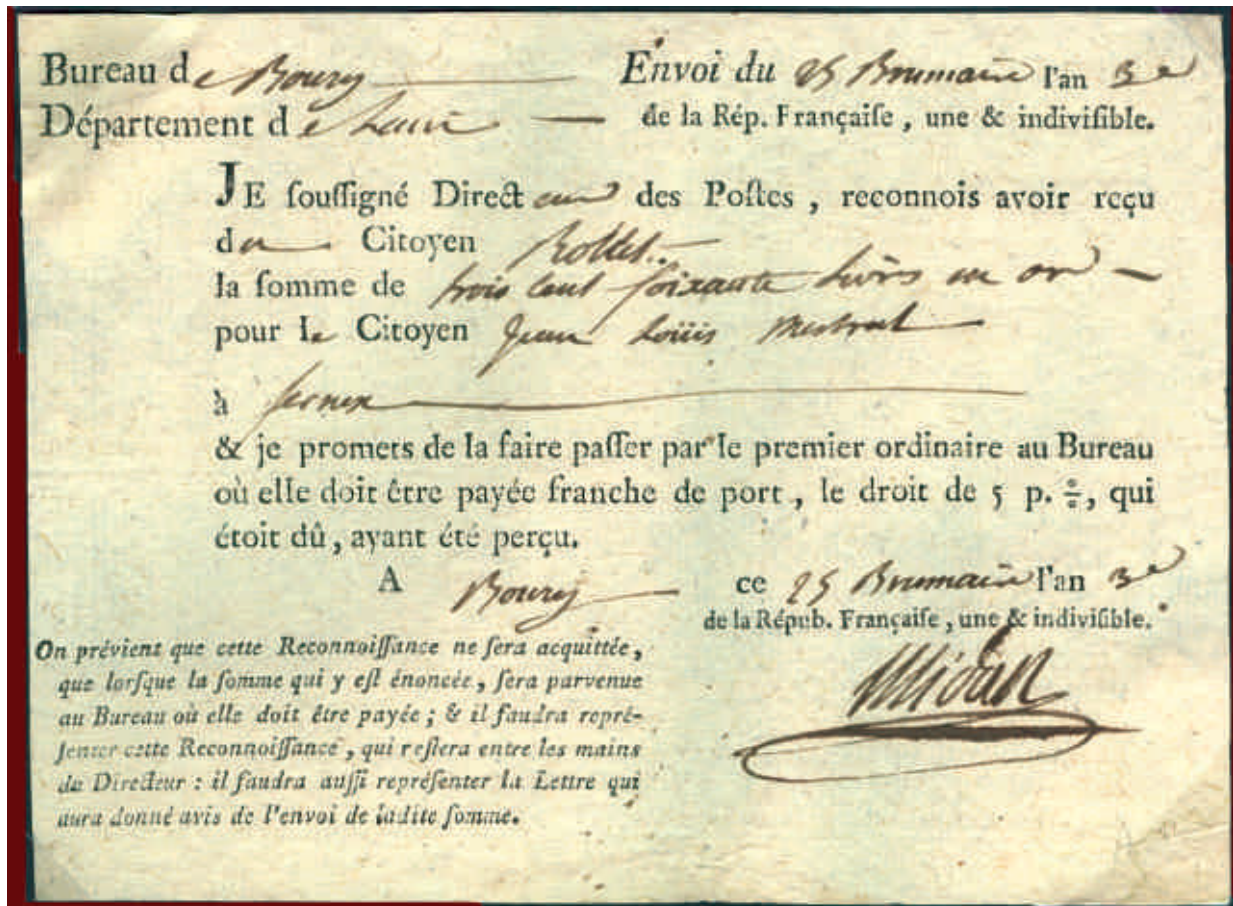 Bureau de Bourg
Envoi du 25 Brumaire l'an 3e
Département de Lain
de la Rép. Françaiſe, une & indiviſible.
JE ſouſſigné Directeur des Poſtes, reconnois avoir reçu
du Citoyen
la ſomme de trois Cent ſoixante Livres en or
pour le Citoyen Jean Loüis Mestral
à fernex
& je promets de la faire paſſer par le premier ordinaire au Bureau
où elle doit être payée franche de port, le droit de 5 p. %, qui
étoit dû, ayant été perçu.
A Bourg ce 25 Brumaire l'an 3e
de la Répub. Françaiſe, une & indiviſible.
On prévient que cette Reconnoiſſance ne ſera acquittée,
que lorſque la ſomme qui y eſt énoncée, ſera parvenue
au Bureau où elle doit être payée; & il faudra repré-
ſenter cette Reconnoiſſance, qui reſtera entre les mains
du Directeur : il faudra auſſi repréſenter la Lettre qui
aura donné avis de l'envoi de ladite ſomme.